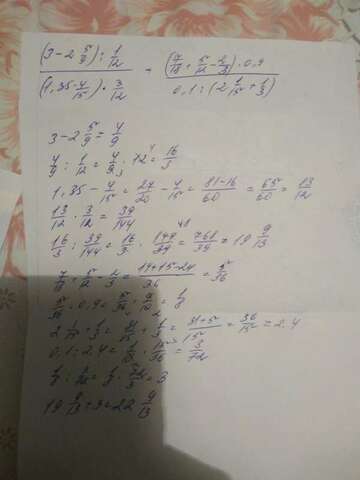 (3-2 5/9) : 1/12 / (1,35 - 4/15) · 3/12 + (7/18 + 5/12 - 2/3) · 0,9 / 0,1 : (2 1/15 + 1/3)
3-2 5/9 = 4/9
4/9 : 1/12 = 4/9 · 12 = 16/3
1,35 - 4/15 = 27/20 - 4/15 = 81-16/60 = 65/60 = 13/12
13/12 · 3/12 = 39/144
16/3 : 39/144 = 16/3 · 144/39 = 768/39 = 19 9/13
7/18 + 5/12 - 2/3 = 14+15-24/36 = 5/36
5/36 · 0,9 = 5/36 · 9/10 = 1/8
2 1/15 + 1/3 = 31/15 + 1/3 = 31+5/15 = 36/15 = 2.4
0,1 : 2,4 = 1/10 · 15/36 = 3/72
1/8 : 3/72 = 1/8 · 72/3 = 3
19 9/13 + 3 = 22 9/13